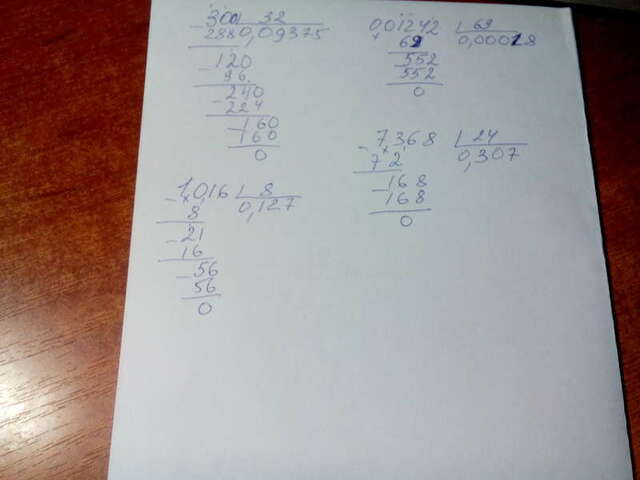 300 32
- 288 0,09375
- 120
96
- 240
- 224
- 160
160
0
0,001242 69
69 0,000018
- 552
552
0
- 7,368 24
72 0,307
- 168
168
0
- 1,016 8
8 0,127
- 21
16
- 56
56
0